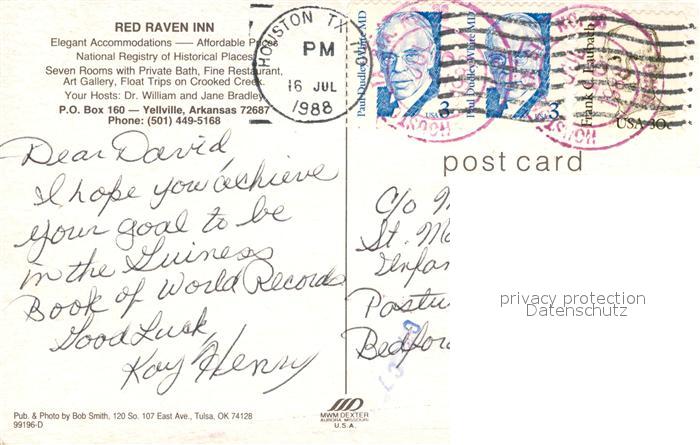 RED RAVEN INN
Elegant Accommodations — Affordable Prices
National Registry of Historical Places
Seven Rooms with Private Bath, Fine Restaurant,
Art Gallery, Float Trips on Crooked Creek.
Your Hosts: Dr. William and Jane Bradley
P.O. Box 160 — Yellville, Arkansas 72687
Phone: (501) 449-5168
HOUSTON TX
PM
16 JUL
1988
Paul Dudley White MD
USA 3
Paul Dudley White MD
3
USA 30c
post card
Dear David,
I hope you achieve
your goal to be
in the Guiness
Book of World Records
Good Luck,
Kay Henry
C/o
St.
Infan
Pastu
Bedfor
privacy protection
Datenschutz
Pub. & Photo by Bob Smith, 120 So. 107 East Ave., Tulsa, OK 74128
99196-D
MWM DEXTER
AURORA, MISSOURI
U.S.A.